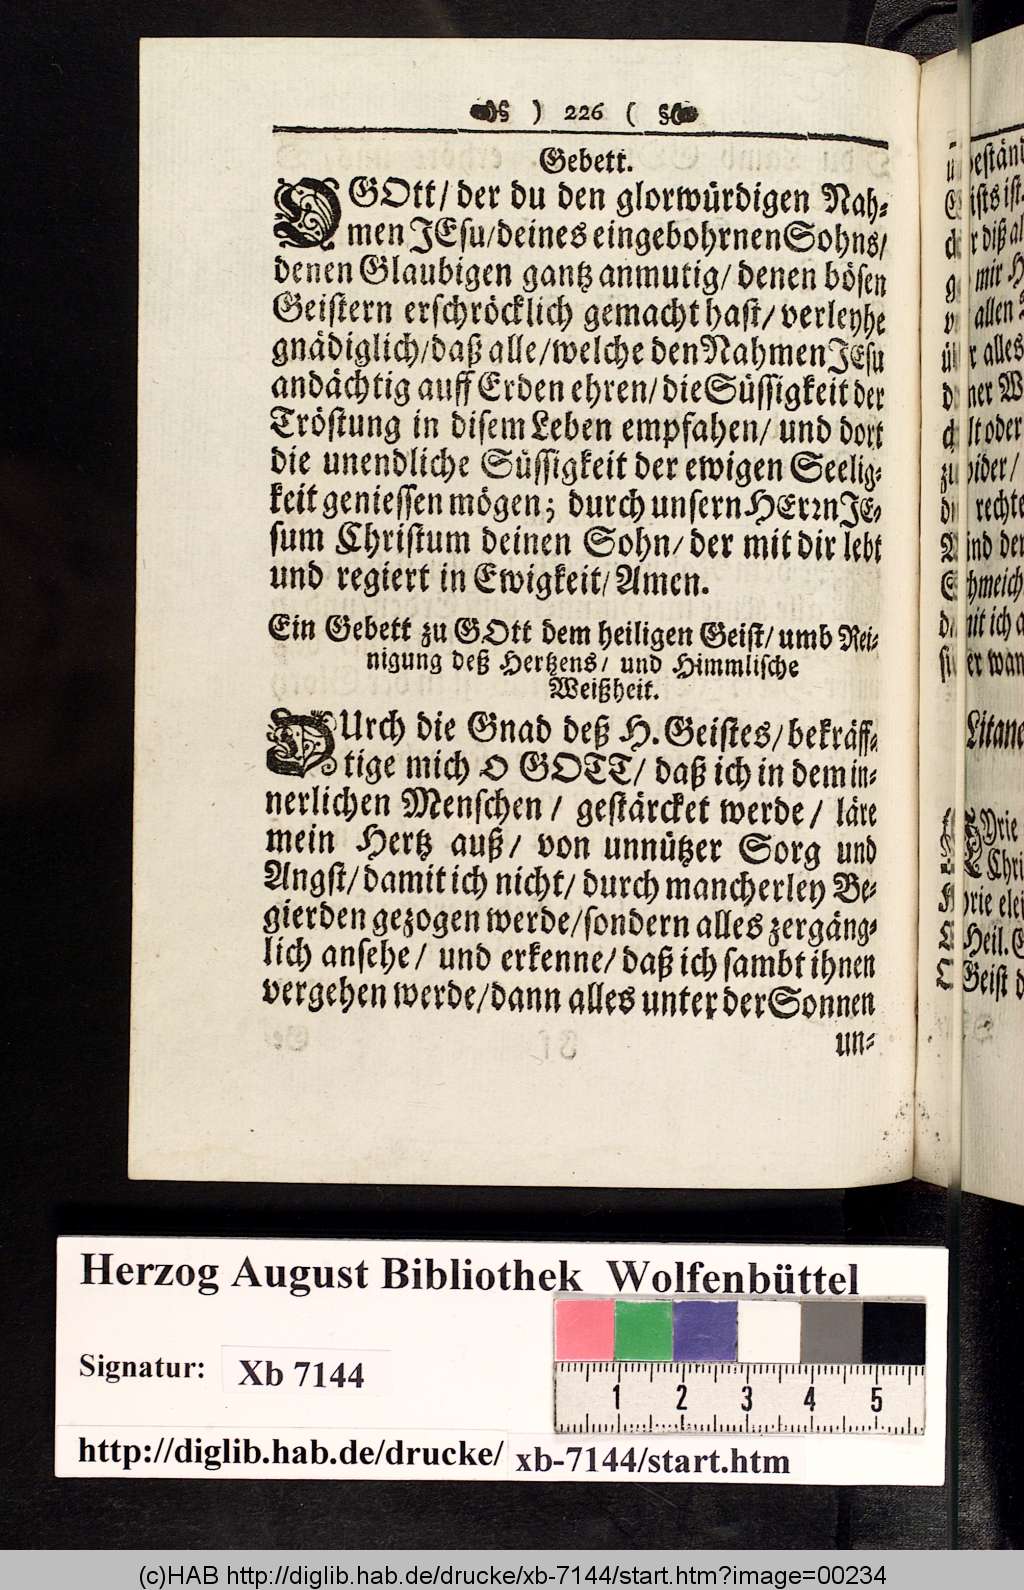 ) 226 (
Gebett.
O GOtt/ der du den glorwürdigen Nah-
men JEsu/ deines eingebohrnen Sohns/
denen Glaubigen gantz anmutig/ denen bösen
Geistern erschröcklich gemacht hast/ verleyhe
gnädiglich/ daß alle/ welche den Nahmen JEsu
andächtig auff Erden ehren/ die Süssigkeit der
Tröstung in disem Leben empfahen/ und dort
die unendliche Süssigkeit der ewigen Seelig-
keit geniessen mögen; durch unsern HErrn JE-
sum Christum deinen Sohn/ der mit dir lebt
und regiert in Ewigkeit/ Amen.
Ein Gebett zu GOtt dem heiligen Geist/ umb Rei-
nigung deß Hertzens/ und Himmlische
Weißheit.
DUrch die Gnad deß H. Geistes/ bekräff-
tige mich O GOTT/ daß ich in dem in-
nerlichen Menschen / gestärcket werde/ läre
mein Hertz auß/ von unnützer Sorg und
Angst/ damit ich nicht/ durch mancherley Be-
gierden gezogen werde/ sondern alles zergäng-
lich ansehe/ und erkenne/ daß ich sambt ihnen
vergehen werde/ dann alles unter der Sonnen
un-
Herzog August Bibliothek Wolfenbüttel
Signatur: Xb 7144
1 2 3 4 5
http://diglib.hab.de/drucke/ xb-7144/start.htm
(c)HAB http://diglib.hab.de/drucke/xb-7144/start.htm?image=00234